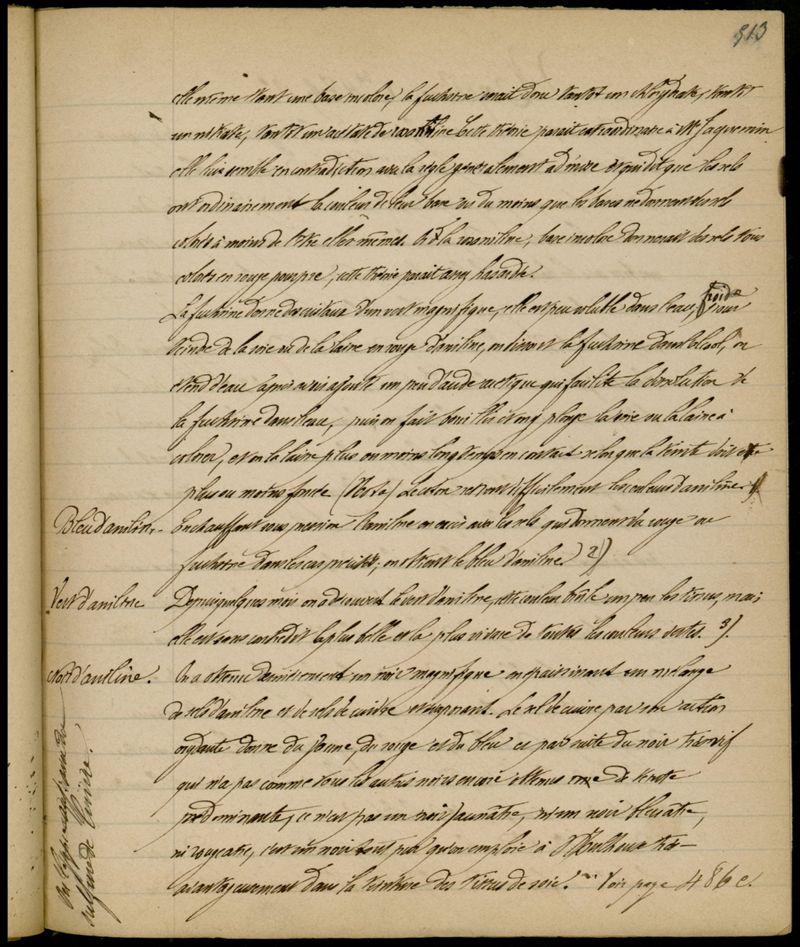 513
elle même étant une base incolore, la fuchsine serait donc tantôt un chlorhydrate, tantôt
un nitrate, tantôt un acétate de rosaniline. Cette théorie paraît extraordinaire à Mr Jacquemin
elle lui semble en contradiction avec la règle généralement admise et qui dit que les sels
ont ordinairement la couleur de leur base ou du moins que les bases ne donnent des sels
colorés à moins de l'être elles mêmes. Or la rosaniline, base incolore donnerait des sels tous
colorés en rouge pourpre, cette théorie paraît assez hasardée.
La fuchsine donne des cristaux d'un vert magnifique, elle est peu soluble dans l'eau froide, pour
teindre de la soie ou de la laine en rouge d'aniline, on dissout la fuchsine dans l'alcool, on
étend d'eau après avoir ajouté un peu d'acide acétique qui facilite la dissolution de
la fuchsine dans l'eau, puis on fait bouillir et on y plonge la soie ou la laine à
colorer, et on la laisse plus ou moins longtemps en contact selon que la teinte doit être
plus ou moins foncée. Le coton retient difficilement les couleurs d'aniline 1).
Bleu d'aniline. En chauffant sous pression l'aniline en excès avec les sels qui donnent du rouge ou
fuchsine dans les cas précités, on obtient le bleu d'aniline. 2)
Vert d'aniline Depuis quelques mois on a découvert le vert d'aniline, cette couleur brûle un peu les tissus, mais
elle est sans contredit la plus belle et la plus vive de toutes les couleurs vertes. 3).
Noir d'aniline. On a obtenu dernièrement un noir magnifique en épaississant un mélange
de sels d'aniline et de sels de cuivre et vaporisant. Le sel de cuivre par son action
oxydante donne du jaune, du rouge et du bleu et par suite du noir très vif
qui n'a pas comme tous les autres noirs encore obtenus une teinte
prédominante, ce n'est pas un noir jaunâtre, ni un noir bleuâtre,
ni rougeâtre, c'est un noir tout pur qu'on emploie à Mulhouse très
avantageusement dans la teinture des tissus de soie. Voir page 486 c.
sulfure de cuivre.